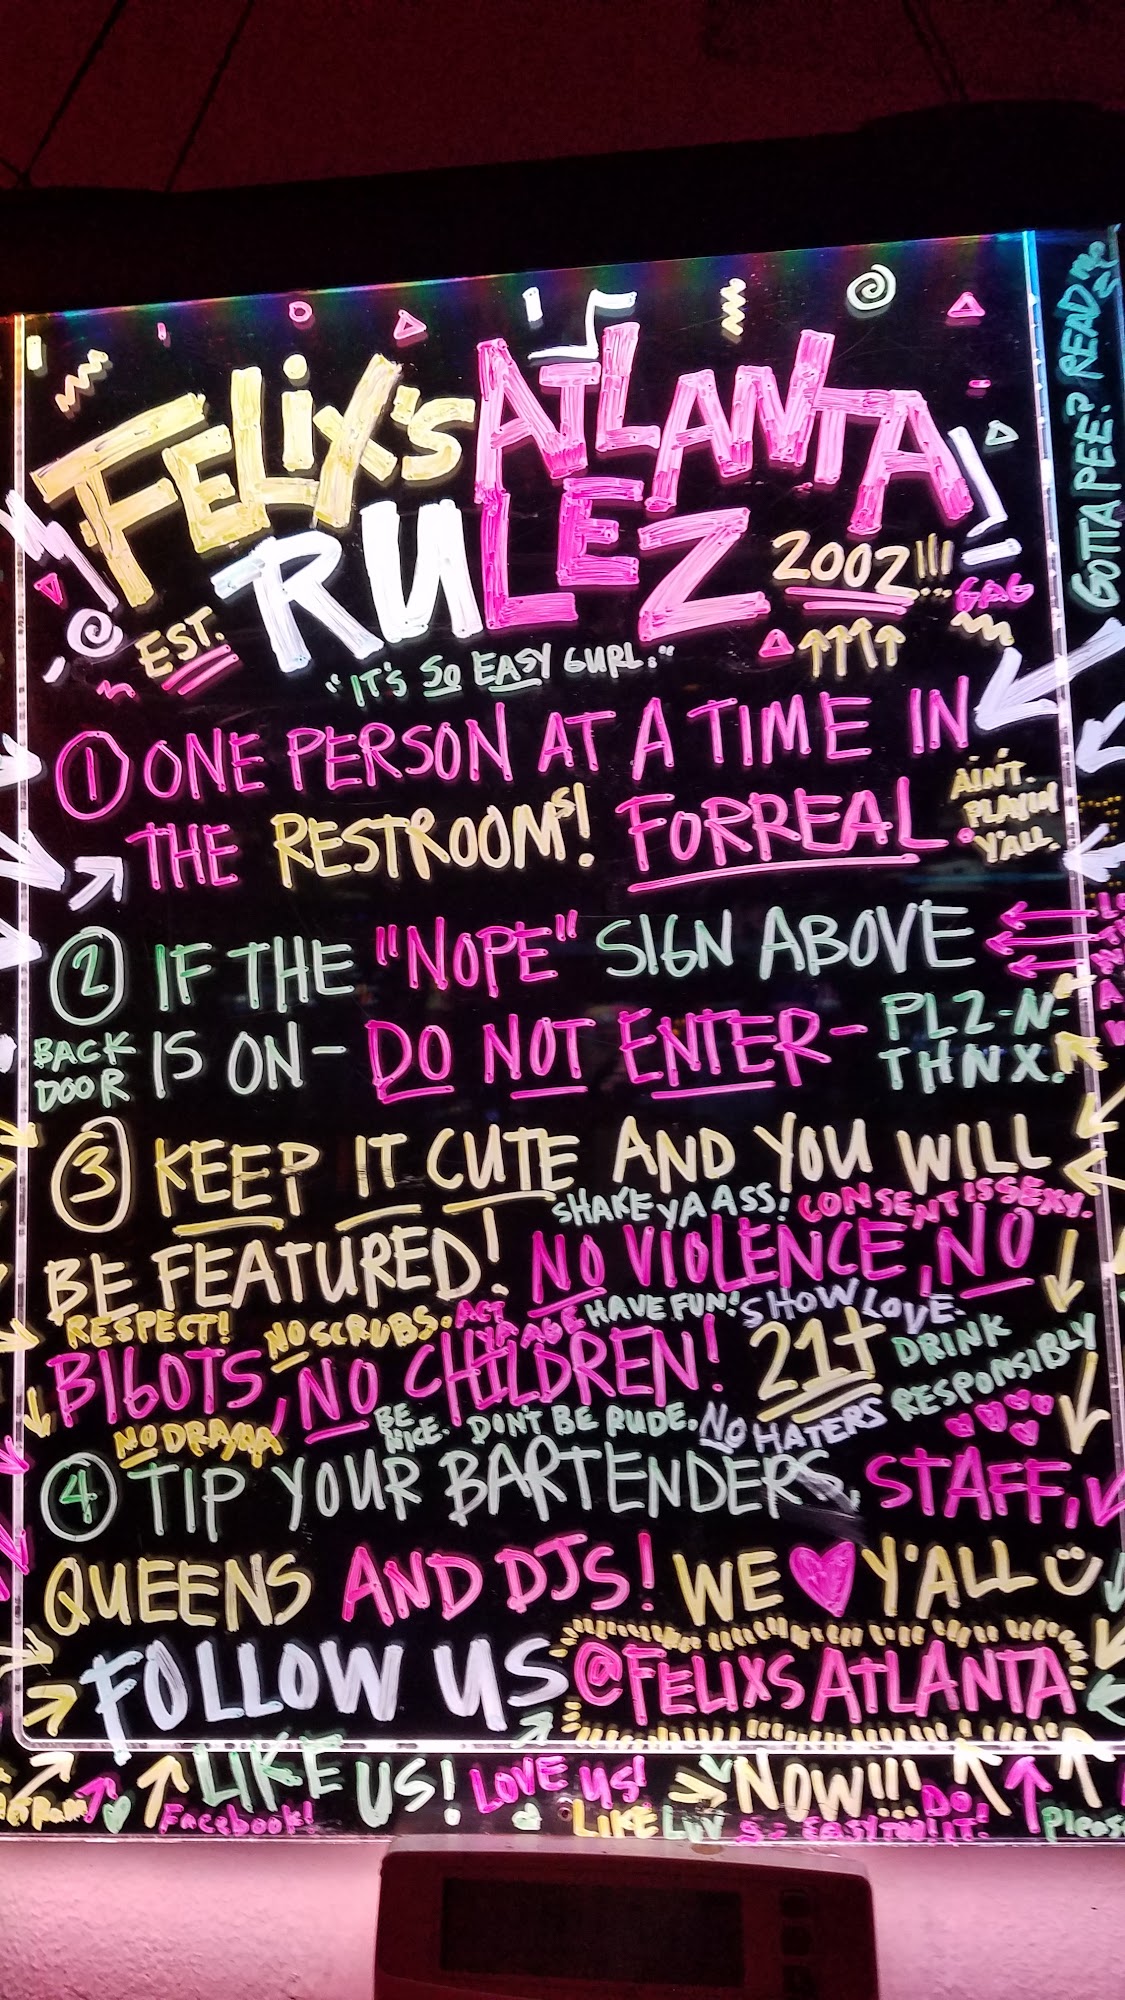 FELIX'S ATLANTA
RULEZ
EST. 2002!!!
GAG
"IT'S SO EASY GURL."
① ONE PERSON AT A TIME IN
THE RESTROOMS! FORREAL.
AIN'T
PLAYIN
Y'ALL.
② IF THE "NOPE" SIGN ABOVE
BACK
DOOR
IS ON - DO NOT ENTER - PLZ-N-
THNX!
③ KEEP IT CUTE AND YOU WILL
SHAKE YA ASS! CONSENT IS SEXY.
BE FEATURED! NO VIOLENCE, NO
RESPECT! NO SCRUBS. ACT YA AGE HAVE FUN! SHOW LOVE.
BIGOTS, NO CHILDREN! 21+ DRINK
RESPONSIBLY
NO DRAMA BE NICE. DON'T BE RUDE. NO HATERS
④ TIP YOUR BARTENDERS, STAFF,
QUEENS AND DJS! WE ♥ Y'ALL
FOLLOW US @FELIXS ATLANTA
LIKE US! LOVE US! NOW!!!
Facebook! LIKE LUV So EASY TOO! DO IT! Please
GOTTA PEE? READ ME